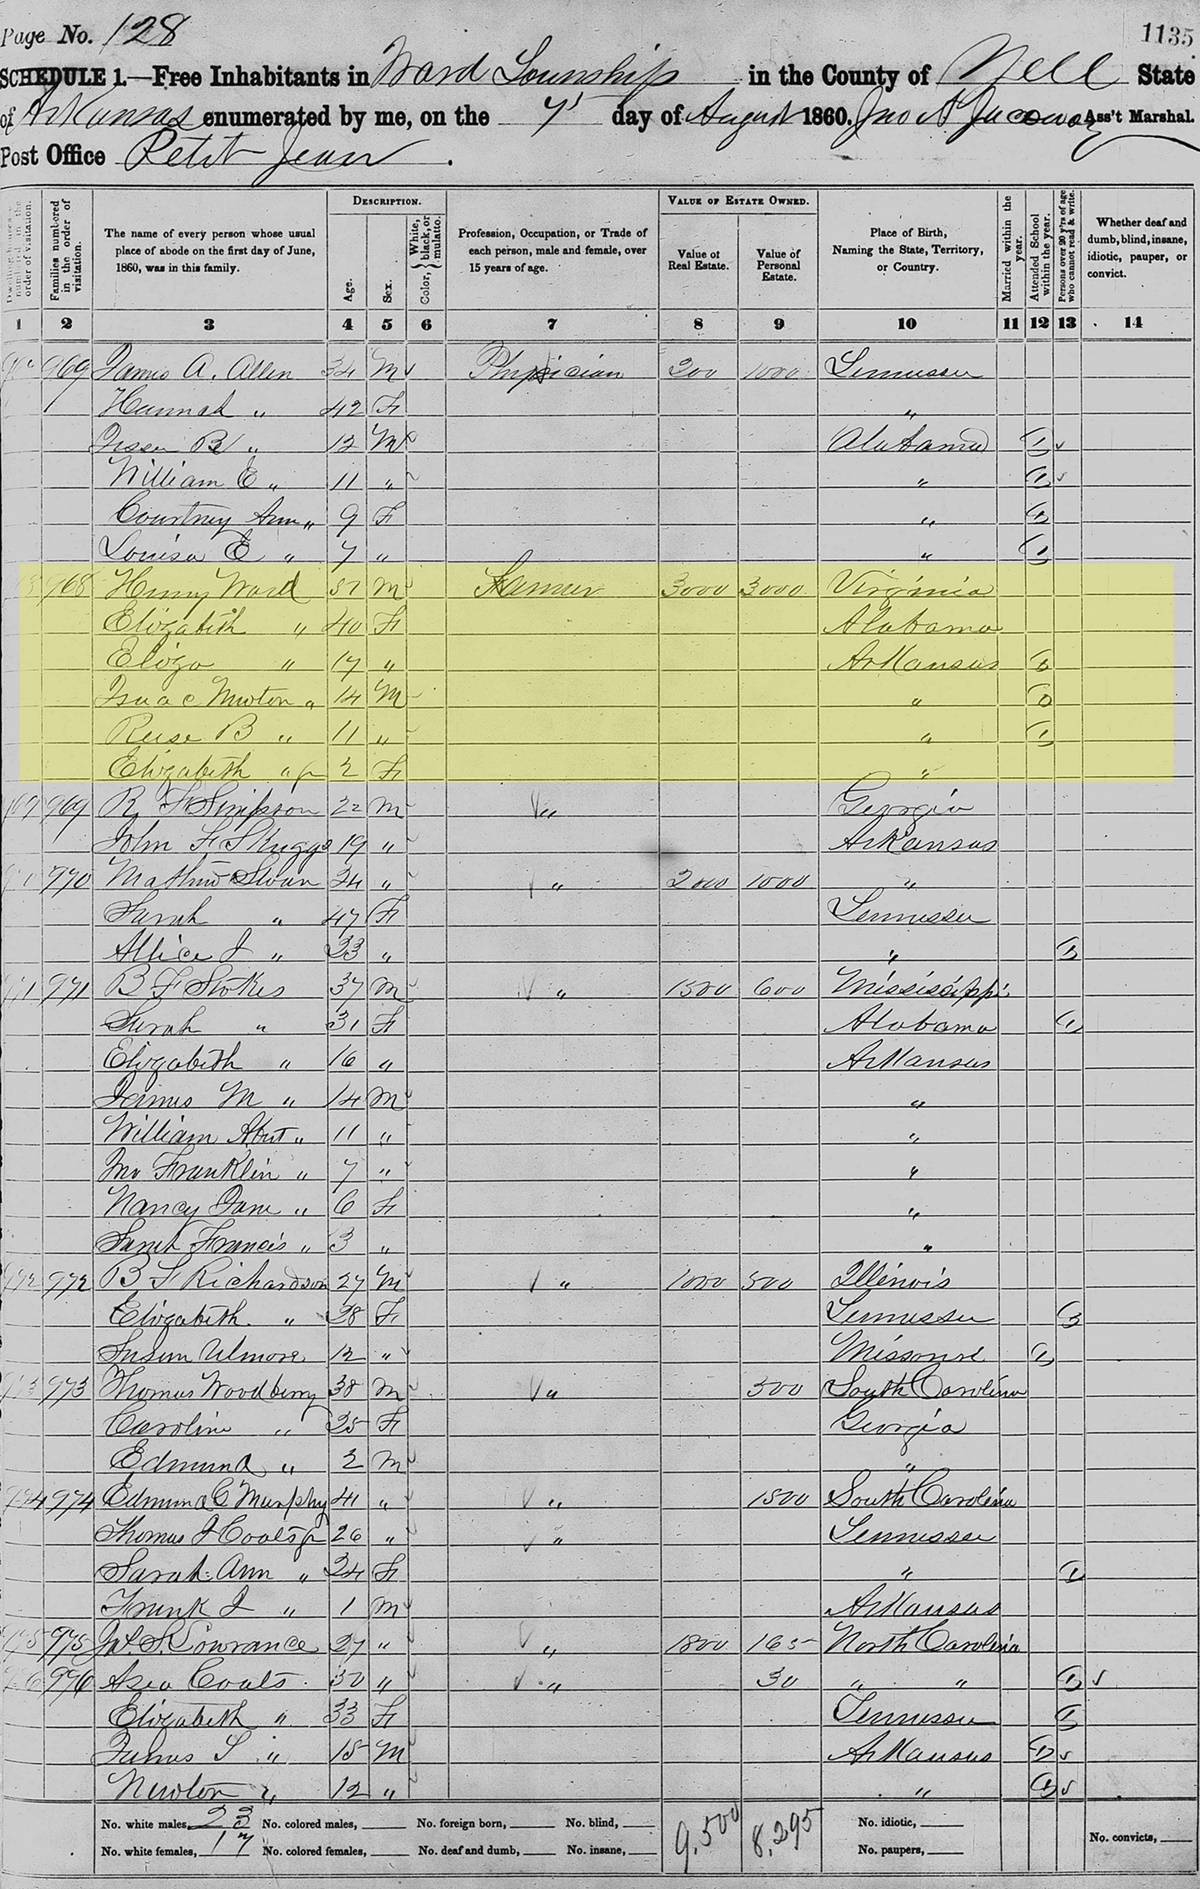 Page No. 128
1135
SCHEDULE 1.—Free Inhabitants in Ward Township in the County of Yell State
of Arkansas enumerated by me, on the 7 day of August 1860. Jno A Jacoway Ass't Marshal.
Post Office Petit Jean.
Families numbered in the order of visitation.
The name of every person whose usual place of abode on the first day of June, 1860, was in this family.
DESCRIPTION.
Age. Sex. Color, White, black, or mulatto.
Profession, Occupation, or Trade of each person, male and female, over 15 years of age.
VALUE OF ESTATE OWNED.
Value of Real Estate. Value of Personal Estate.
Place of Birth, Naming the State, Territory, or Country.
Married within the year. Attended School within the year. Persons over 20 y'rs of age who cannot read & write.
Whether deaf and dumb, blind, insane, idiotic, pauper, or convict.
1 2 3 4 5 6 7 8 9 10 11 12 13 14
969 James A. Allen 34 M Physician 200 1000 Tennessee
Hannah " 42 F "
B " 12 M Alabama 1
William E " 11 " " 1
Courtney Ann " 9 F " 1
Louisa E " 7 " " 1
968 Henry Ward 57 M Farmer 3000 3000 Virginia
Elizabeth " 40 F Alabama
Eliza " 17 " Arkansas
Isaac Newton " 14 M "
Reese B " 11 " " 1
Elizabeth " jr 2 F "
969 R F Simpson 22 M " Georgia
John F Skuggs 19 " Arkansas
970 Mathew Swan 24 " " 2000 1000 "
Sarah " 47 F Tennessee
Allice J " 23 " " 1
971 971 B F Stokes 37 M " 1500 600 Mississippi
Sarah " 31 F Alabama 1
Elizabeth " 16 " Arkansas
James M " 14 M "
William " 11 " "
Jno Franklin " 7 " "
Nancy Jane " 6 F "
Sarah Francis " 3 " "
972 972 B F Richardson 27 M " 1000 500 Illinois
Elizabeth " 28 F Tennessee
Susan Elmore 12 " Missouri 1
973 973 Thomas Woodberry 38 M " 300 South Carolina
Caroline " 25 F Georgia
Edmund " 2 M "
974 974 Edmund G Murphy 41 " " 1500 South Carolina
Thomas J Coats jr 26 " " Tennessee
Sarah Ann " 24 F " 1
Frank J " 1 M Arkansas
975 975 S. Lowrance 27 " " 1800 165 North Carolina
976 Asa Coats 30 " " 30 " " 1
Elizabeth " 33 F Tennessee 1
James S " 15 M Arkansas 1
Newton " 12 " " 1
No. white males, 23 No. colored males, No. foreign born, No. blind, 9,500 8,295 No. idiotic,
No. white females, 17 No. colored females, No. deaf and dumb, No. insane, No. paupers, No. convicts,